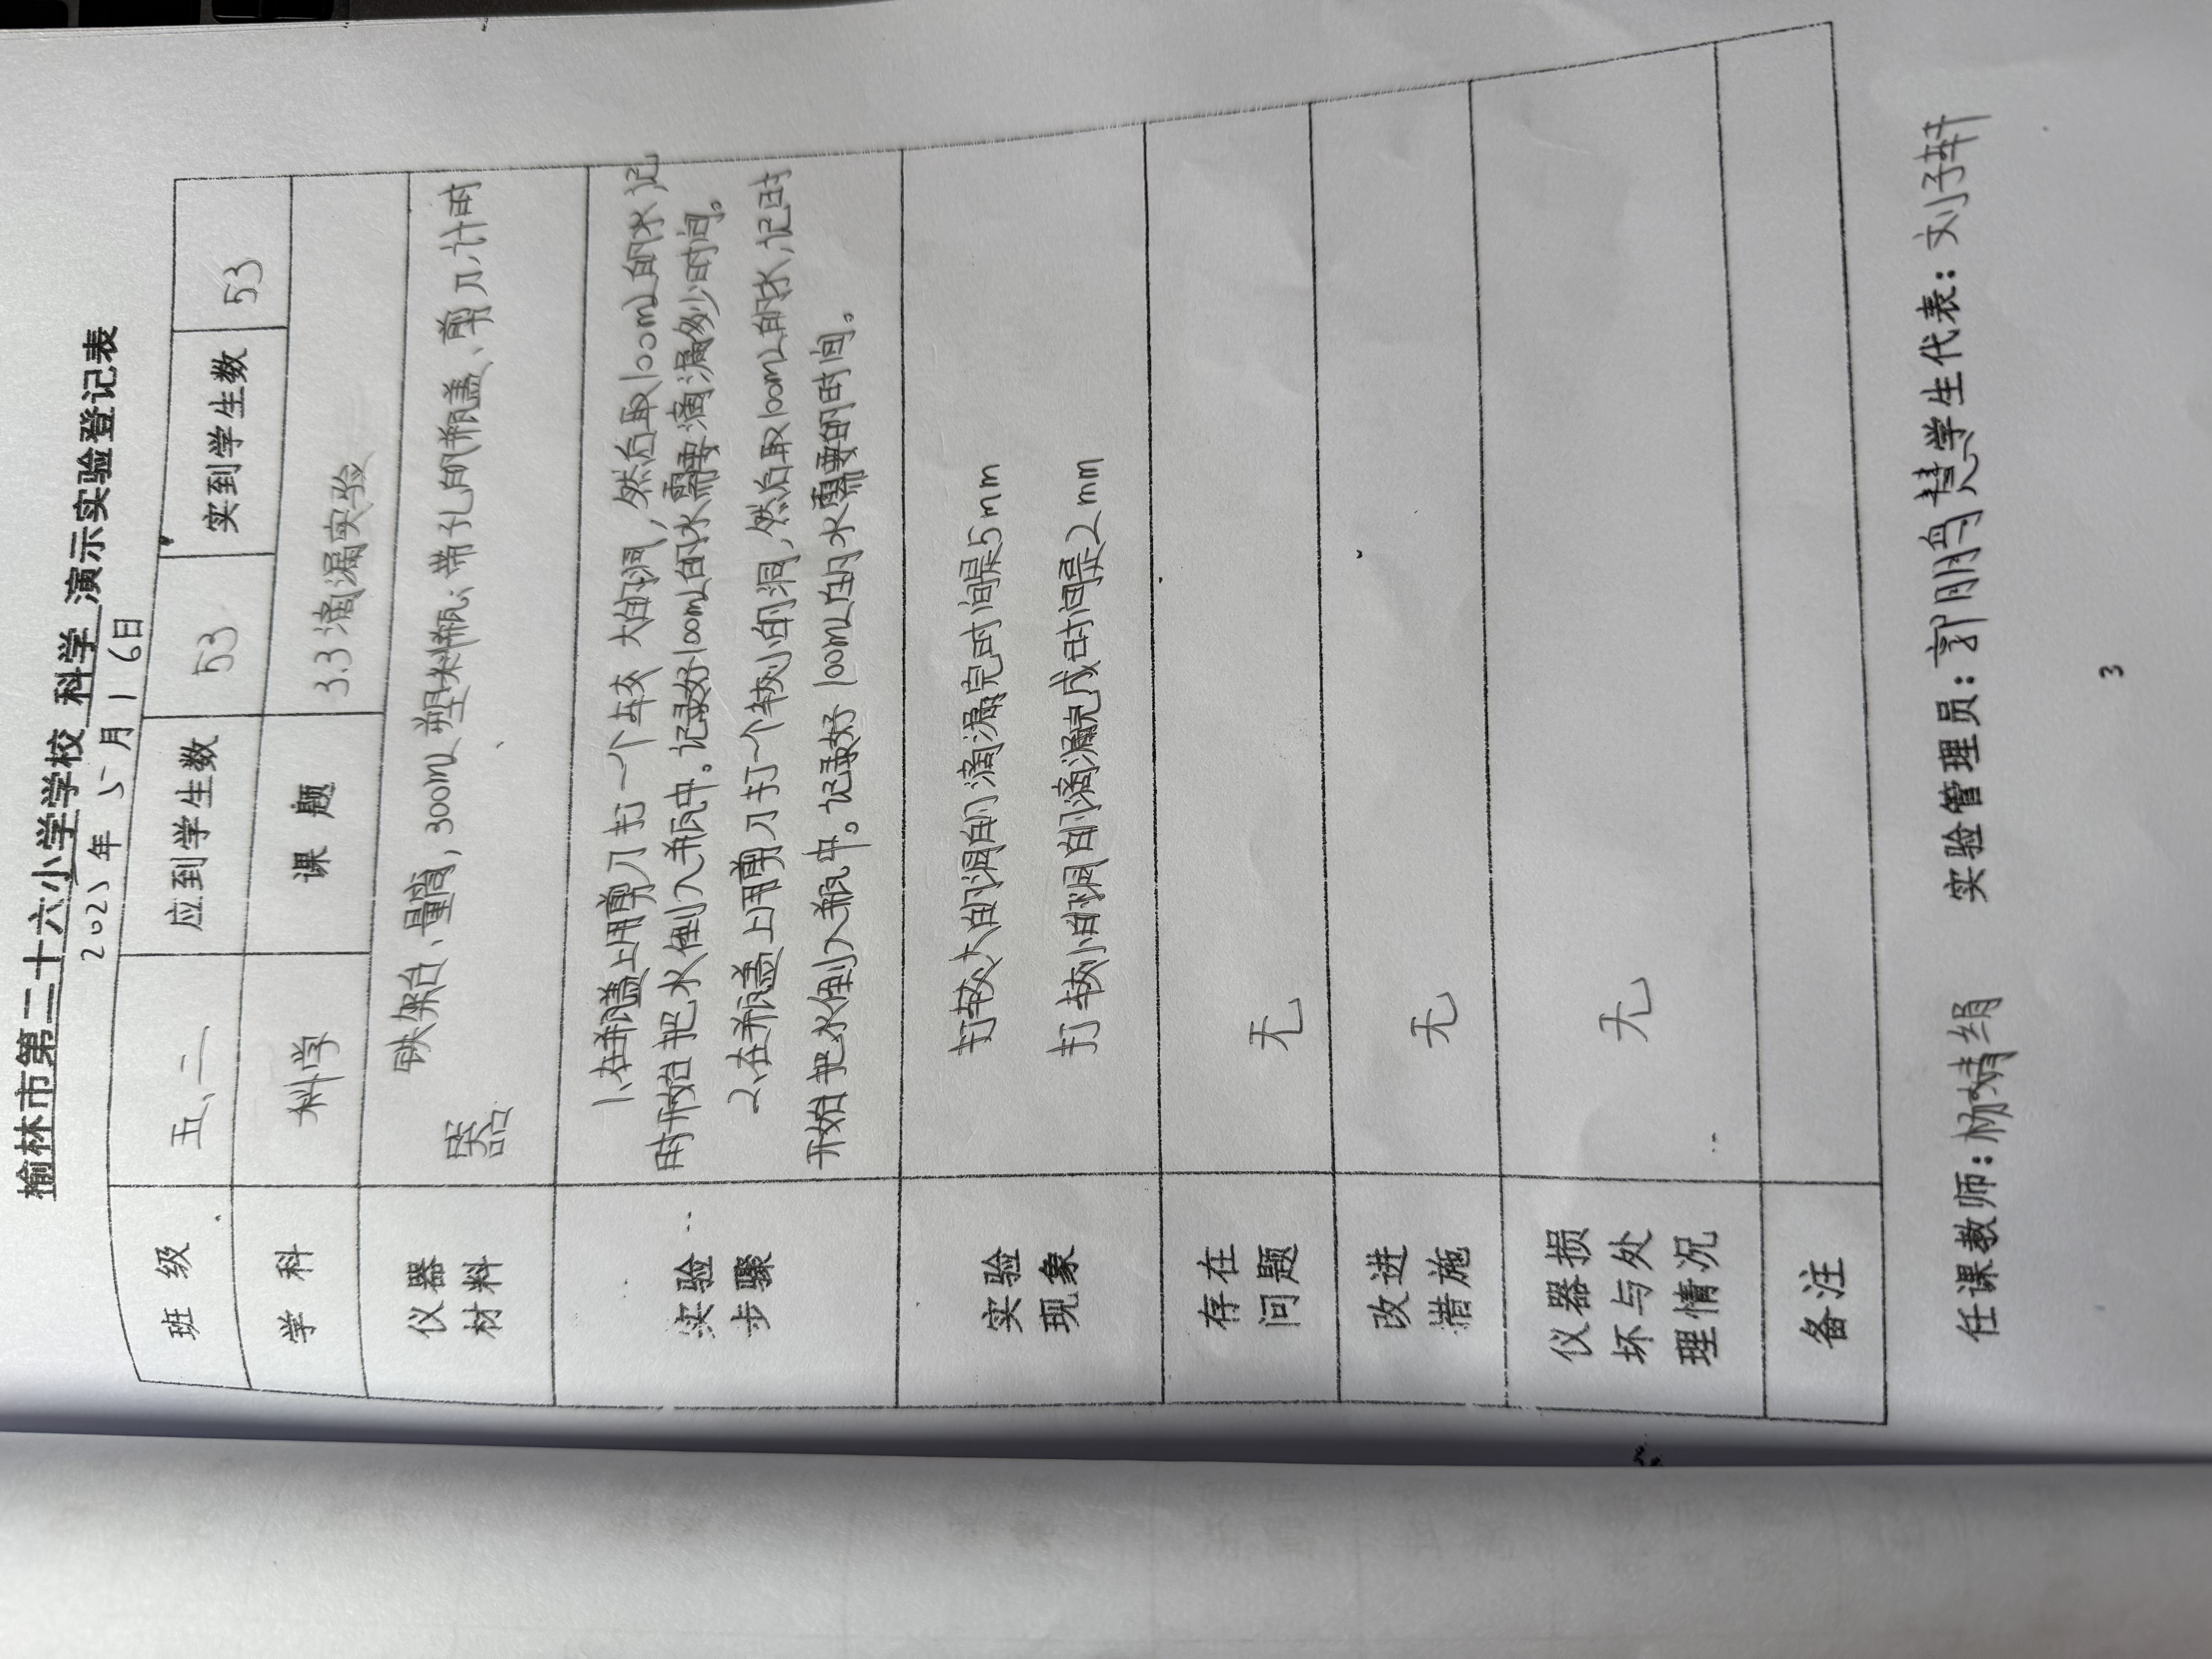 榆林市第二十六小学学校 科学 演示实验登记表
2025年5月16日
班级 五、二 应到学生数 53 实到学生数 53
学科 科学 课题 3.3滴漏实验
仪器材料 铁架台、量筒,300mL塑料瓶、带孔的瓶盖、剪刀、计时
器
实验步骤 1、在瓶盖上用剪刀打一个较大的洞,然后取100mL的水,记
时开始把水倒入瓶中。记录好100mL的水需要滴漏多少时间。
2、在瓶盖上用剪刀打一个较小的洞,然后取100mL的水,记时
开始把水倒入瓶中。记录好100mL的水需要的时间。
实验现象 打较大的洞的滴漏完时间是5mm
打较小的洞的滴漏完成时间是2mm
存在问题 无
改进措施 无
仪器损坏与处理情况 无
备注
任课教师:杨婧绢 实验管理员:郭鹏慧 学生代表:刘子轩
3